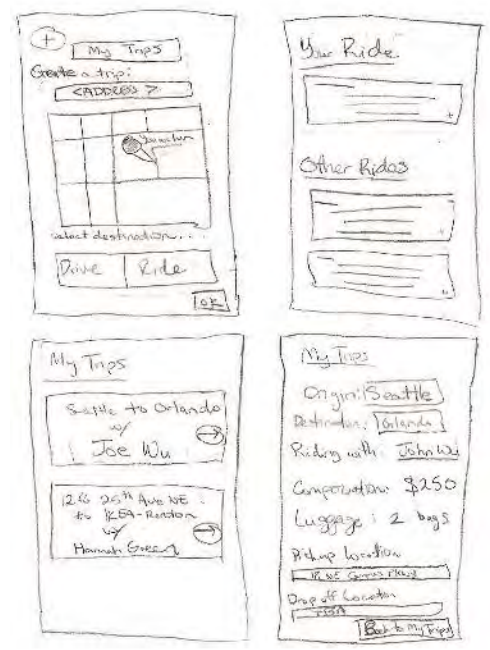 +
My Trips
Create a trip:
<ADDRESS>
You are here
select destination...
Drive Ride
OK
Your Ride
+
Other Rides
My Trips
Seattle to Orlando
w/
Joe Wu
25th Ave NE
to IKEA-Renton
w/
Hannah Green
My Trips
Origin: Seattle
Destination: Orlando
Riding with: John Wu
Compensation: $250
Luggage: 2 bags
Pickup Location
Drop off Location
Back to My Trips